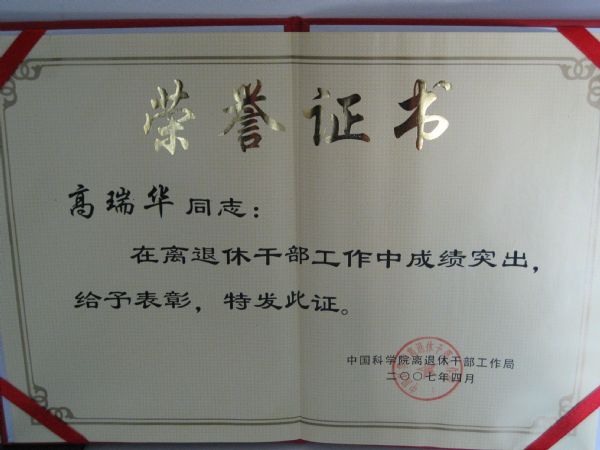 荣誉证书
高瑞华 同志：
在离退休干部工作中成绩突出，
给予表彰，特发此证。
中国科学院离退休干部工作局
二〇〇七年四月